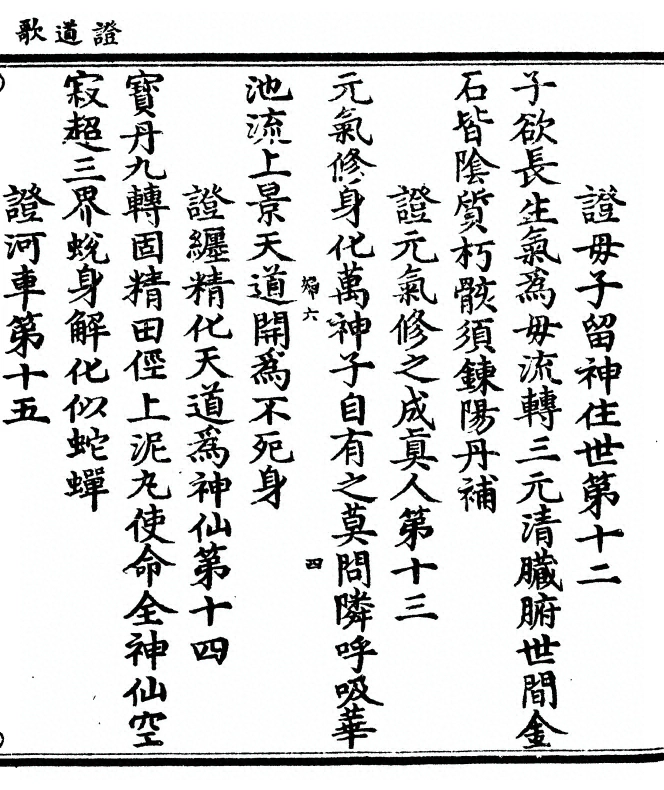 證道歌
證毋子留神住世第十二
子欲長生氣爲毋流轉三元清臟腑世間金
石皆陰質朽骸須鍊陽丹補
證元氣修之成眞人第十三
元氣修身化萬神子自有之莫問隣呼吸華
四
池流上景天道開爲不死身
證纏精化天道爲神仙第十四
寶丹九轉固精田徑上泥丸使命全神仙空
寂超三界蛻身解化似蛇蟬
證河車第十五